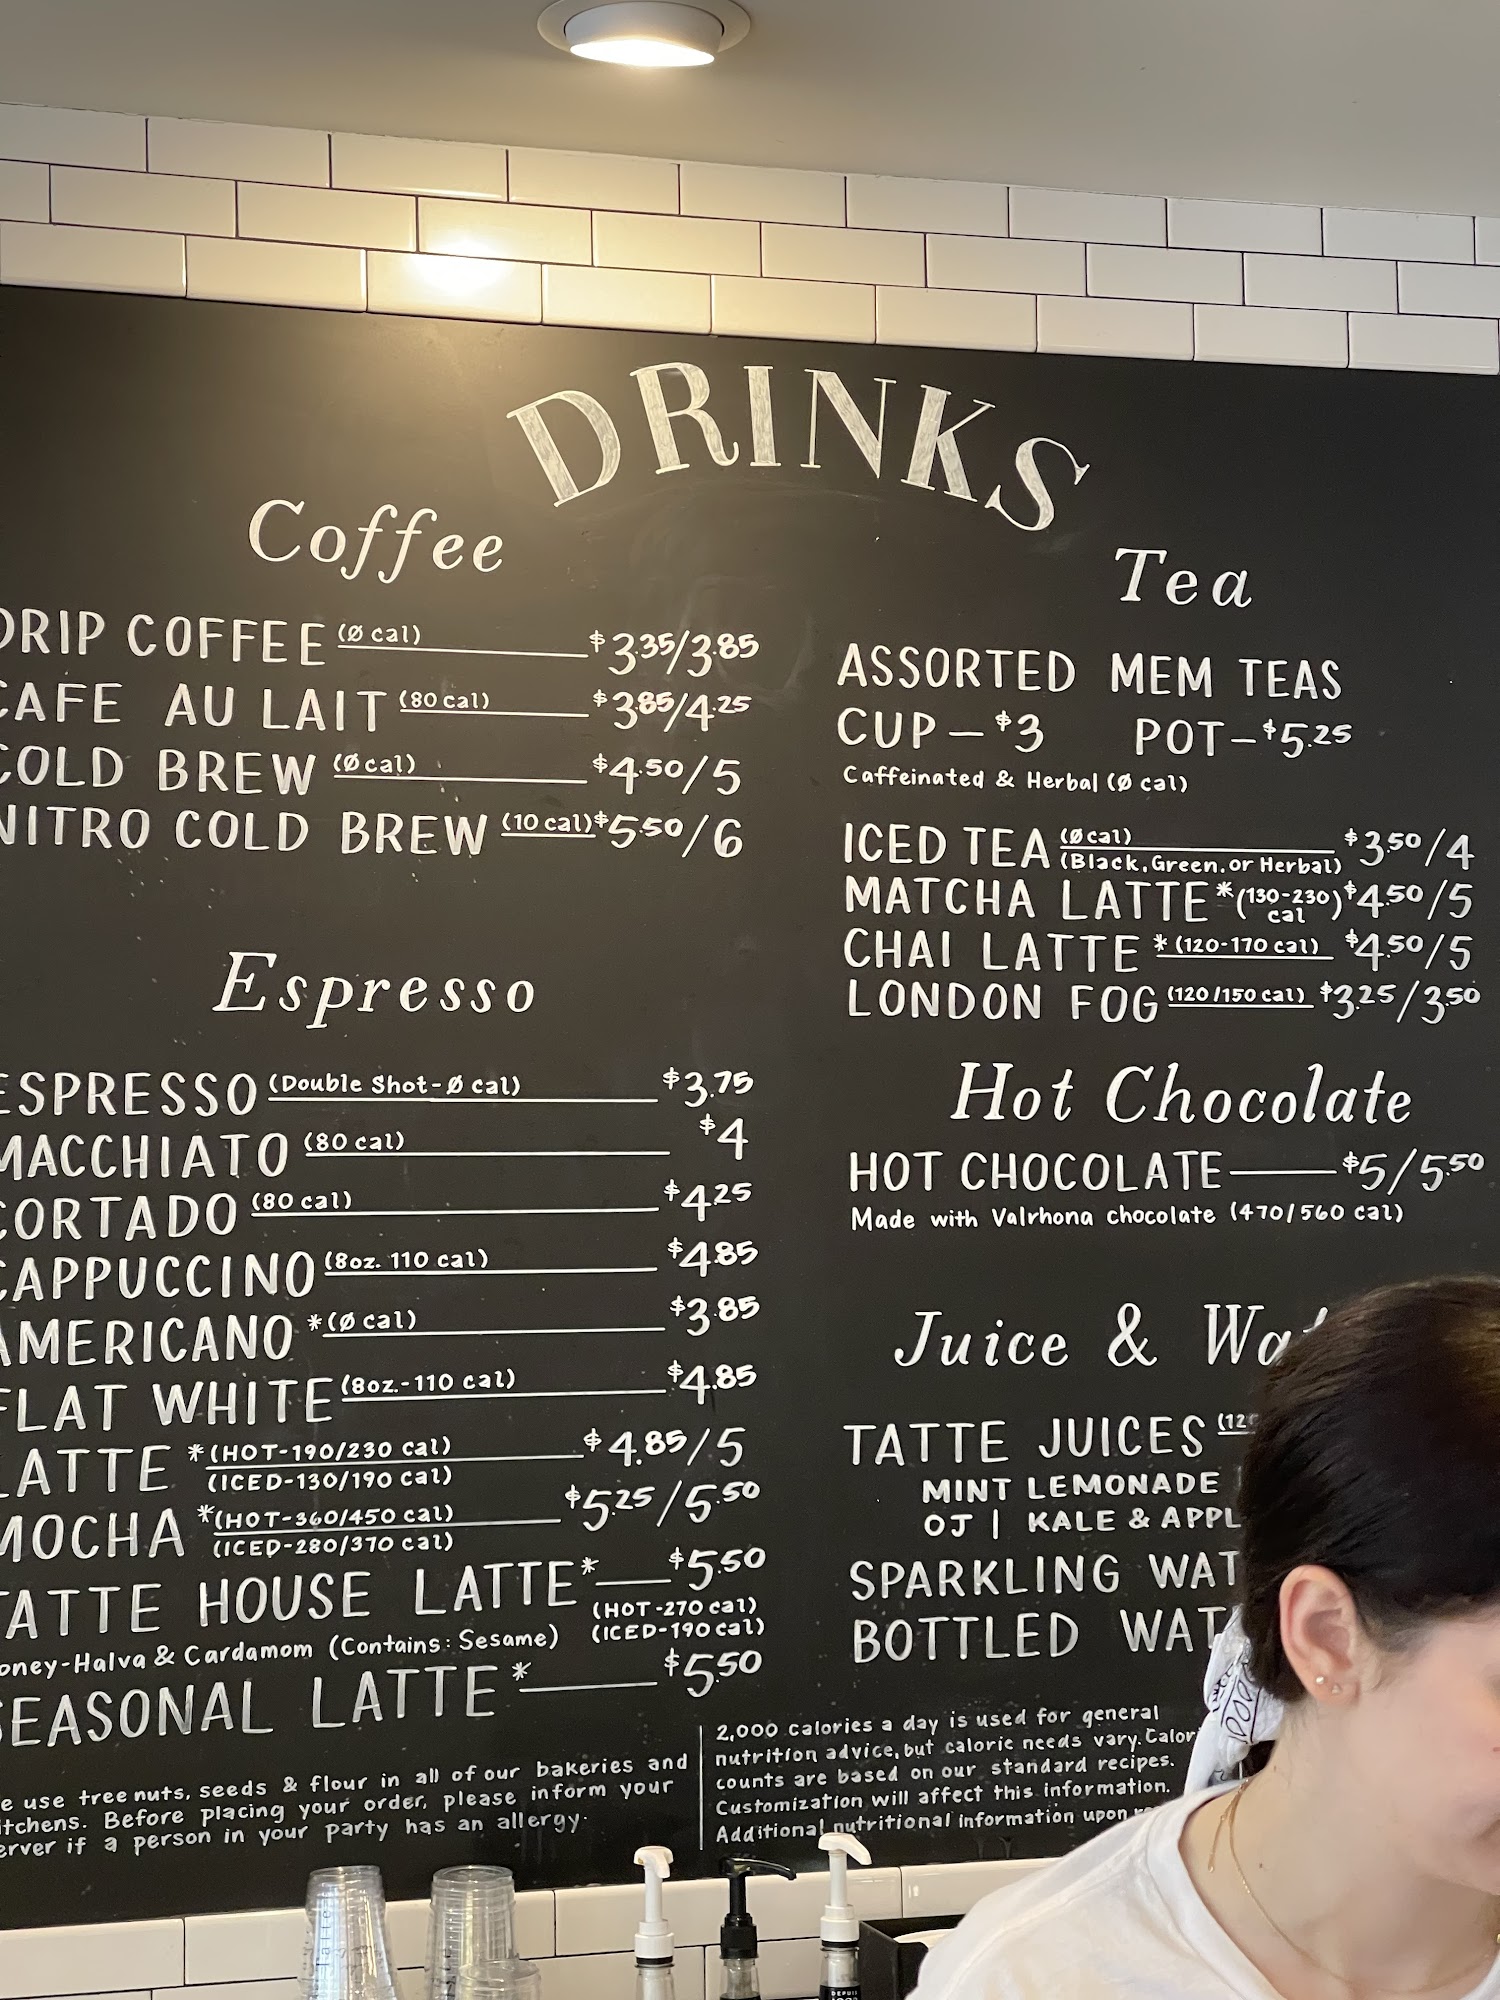 DRINKS
Coffee
DRIP COFFEE (Ø cal) $3.35/3.85
CAFE AU LAIT (80 cal) $3.85/4.25
COLD BREW (Ø cal) $4.50/5
NITRO COLD BREW (10 cal) $5.50/6
Espresso
ESPRESSO (Double Shot-Ø cal) $3.75
MACCHIATO (80 cal) $4
CORTADO (80 cal) $4.25
CAPPUCCINO (8oz. 110 cal) $4.85
AMERICANO *(Ø cal) $3.85
FLAT WHITE (8oz.-110 cal) $4.85
LATTE *(HOT-190/230 cal) $4.85/5
(ICED-130/190 cal)
MOCHA *(HOT-360/450 cal) $5.25/5.50
(ICED-280/370 cal)
TATTE HOUSE LATTE* $5.50
(HOT-270 cal)
oney-Halva & Cardamom (Contains: Sesame) (ICED-190 cal)
SEASONAL LATTE* $5.50
e use tree nuts, seeds & flour in all of our bakeries and
itchens. Before placing your order, please inform your
erver if a person in your party has an allergy.
Tea
ASSORTED MEM TEAS
CUP-$3 POT-$5.25
Caffeinated & Herbal (Ø cal)
ICED TEA (Ø cal) $3.50/4
(Black, Green, or Herbal)
MATCHA LATTE *(130-230) $4.50/5
cal
CHAI LATTE *(120-170 cal) $4.50/5
LONDON FOG (120/150 cal) $3.25/3.50
Hot Chocolate
HOT CHOCOLATE $5/5.50
Made with Valrhona chocolate (470/560 cal)
Juice & Wa
TATTE JUICES (12
MINT LEMONADE
OJ | KALE & APPL
SPARKLING WAT
BOTTLED WAT
2,000 calories a day is used for general
nutrition advice, but calorie needs vary. Calori
counts are based on our standard recipes.
Customization will affect this information.
Additional nutritional information upon
DEPUIS